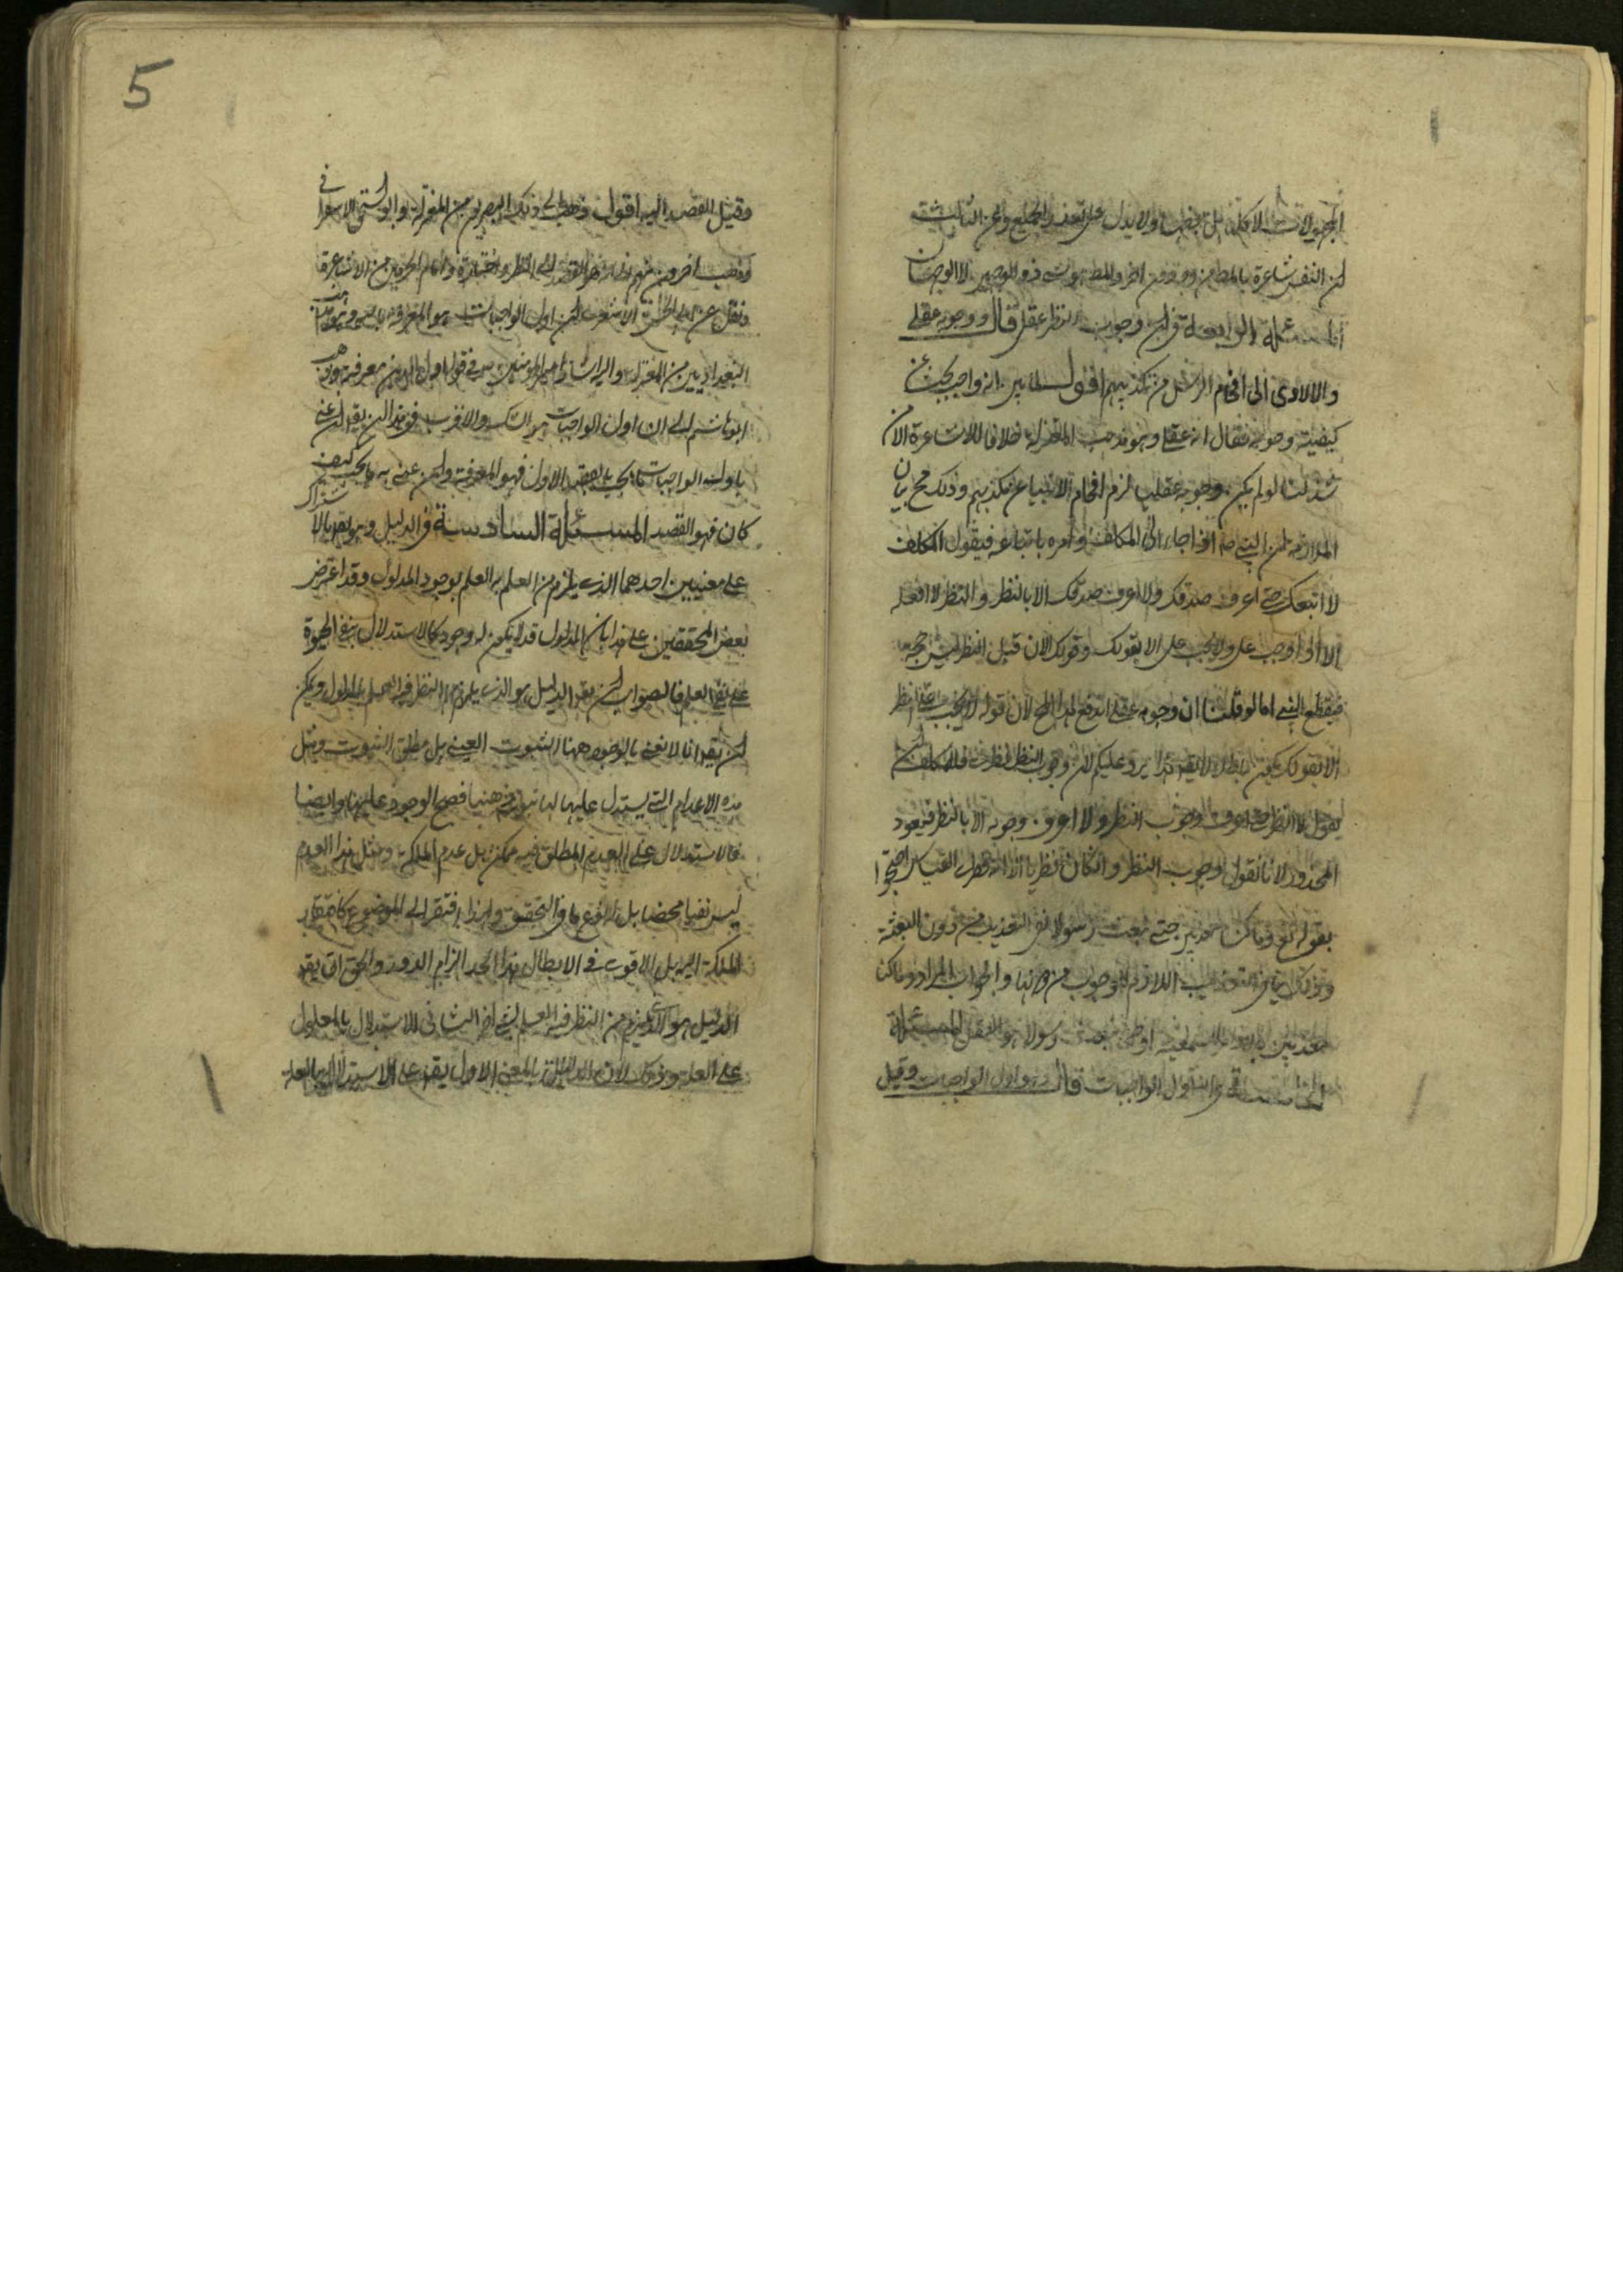 المجهولات لا كلها بل بعضها ولا يدل على تعذر الجميع وعن الثالث
ان النفس شاعرة بالمطلوب من وجه دون اخر والمطلوب هو ذو الوجهين لا الوجهان
المسئلة الرابعة في ان وجوب النظر عقلي قال ووجوبه عقلي
والا لادى الى افحام الرسل من تكذيبهم اقول لما بين انه واجب بحث عن
كيفية وجوبه فقال انه عقلي وهو مذهب المعتزلة خلافا للاشاعرة الا من
شذ لنا لو لم يكن وجوبه عقليا لزم افحام الانبياء عن تكذيبهم وذلك مح بيان
الملازمة ان النبي ص اذا جاء الى المكلف وامره باتباعه فيقول المكلف
لا اتبعك حتى اعرف صدقك ولا اعرف صدقك الا بالنظر والنظر لا افعله
الا اذا وجب علي ولا يجب علي الا بقولك وقولك الان قبل النظر ليس بحجة
فينقطع النبي اما لو قلنا ان وجوبه عقلي اندفع هذا المح لان قوله لا يجب علي النظر
الا بقولك يكون باطلا لا يقد هذا يرد عليكم لان وجوب النظر نظري فللمكلف ان
يقول لا انظر حتى اعرف وجوب النظر ولا اعرف وجوبه الا بالنظر فيعود
المحذور لانا نقول وجوب النظر وان كان نظريا الا انه فطري القياس احتجوا
بقوله تع وما كنا معذبين حتى نبعث رسولا نفى التعذيب من دون البعثة
وذلك ينفي التعذيب اللازم للوجوب من دونها والجواب المراد وما كنا
معذبين بالاوامر السمعية او حتى نبعث رسولا هو العقل المسئلة
الخامسة في اول الواجبات قال واول الواجبات وقيل
5
وقيل القصد اليه اقول ذهب الى ذلك البصريون من المعتزلة وابو اسحق الاسفرا في
وذهب اخرون منهم انه هو القصد الى النظر واختاره امام الحرمين من الاشاعرة
ونقل عن ابي الحسن الاشعري ان اول الواجبات هو المعرفة بالله وهو مذهب
البغداديين من المعتزلة واليه اشار امير المؤمنين في قوله اول الدين معرفته وذهب
ابو هاشم الى ان اول الواجبات هو الشك والاقرب في هذا ان يقد ان عنى
باول الواجبات ما يجب بالقصد الاول فهو المعرفة وان عنى به ما يجب كيف
كان فهو القصد المسئلة السادسة في الدليل وهو يقد بالاشتراك
على معنيين احدهما الذي يلزم من العلم به العلم بوجود المدلول وقد اعترض
بعض المحققين على هذا بان المدلول قد لا يكون له وجود كالاستدلال بنفي الحيوة
على نفي العلم فالصواب ان يقد الدليل هو الذي يلزم من النظر فيه العلم بالمدلول ويمكن
ان يقد انا لا نعني بالوجود ههنا الثبوت العيني بل مطلق الثبوت ومثل
هذه الاعدام التي يستدل عليها لها ثبوت ذهنيا فصح الوجود عليها وايضا
فالاستدلال على العدم المطلق غير ممكن بل عدم الملكة ومثل هذا العدم
ليس نفيا محضا بل له نوع ما من التحقق ولهذا افتقر الى الموضوع كافتقار
الملكة اليه بل الاقوى في الابطال هذا الحد الزام الدور والحق ان يقد
الدليل هو الذي يلزم من النظر فيه العلم بشيء اخر الثاني الاستدلال بالمعلول
على العلة وذلك لان الدليل بالمعنى الاول يقد على الاستدلال بالعلة